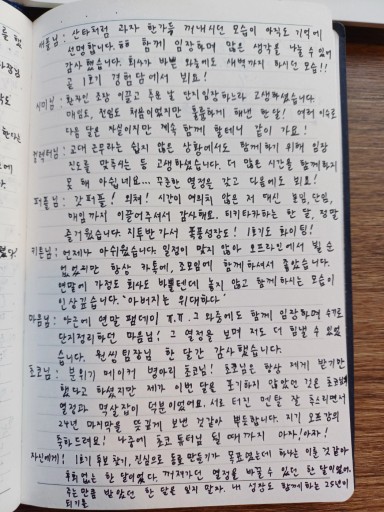 애플님: 산타처럼 과자 한가득 꺼내시던 모습이 아직도 기억에
선명합니다.ㅎㅎ 함께 임장하며 많은 생각을 나눌 수 있어
감사했습니다. 회사가 바쁜 와중에도 새벽까지 하시던 모습!!
곧 1호기 경험담에서 뵈요!
시미님: 환자인 조장 이끌고 추운 날 단지임장하느라 고생하셨습니다.
매임도, 전임도 처음이었지만 훌륭하게 해낸 한달! 여러 이유로
다음 달은 자실이지만 계속 함께 할테니 같이 가요!
교대 근무라는 쉽지 않은 상황에서도 함께하기 위해 임장
진도를 맞추시는 등 고생하셨습니다. 더 많은 시간을 함께하지
못 해 아쉽네요... 꾸준한 열정을 갖고 다음에도 뵈요!
퍼플님: 갓 퍼플! 외쳐! 시간이 여의치 않은 저 대신 분임, 단임,
매임까지 이끌어주셔서 감사해요. 티키타카하는 한 달, 정말
즐거웠습니다. 지투반 가서 폭풍성장도! 1호기도 화이팅!
키튼님: 언제나 아쉬웠습니다 일정이 맞지 않아 오프라인에서 뵐 순
없었지만 항상 카톡에, 조모임에 함께하셔서 좋았습니다.
연말에 가정도 회사도 바쁠텐데 놓지 않고 함께하시는 모습이
인상깊습니다. '아버지는 위대하다'
마음님: 야근에 연말 팸데이 T.T 그 와중에도 함께 임장하며 수기로
단지정리하던 마음님! 그 열정을 보며 저도 더 힘낼 수 있었
습니다. 원씽팀장님 한 달간 감사했습니다.
초코님: 분위기 메이커 병아리 초코님! 초코님은 항상 제게 받기만
했다고 하셨지만 제가 이번 달을 포기하지 않았던 것은 초코님의
열정과 먹살잡이 덕분이었어요. 서로 터진 멘탈 잘 추스리면서
24년 마지막을 뜻깊게 보낸 것같아 뿌듯합니다. 지기 오프강의
축하드려요! 나중에 초코 튜터님 될 때까지 아자!아자!
자신에게: 1호기 후보 찾기, 진심으로 동료 만들기가 목표였는데 하나는 이룬 것같아
후회없는 한 달이었다. 꺼져가던 열정을 바꿀 수 있던 한 달이었어.
주는만큼 받았던 한 달을 잊지 말자. 내 성장도 함께하는 25년이
되기를